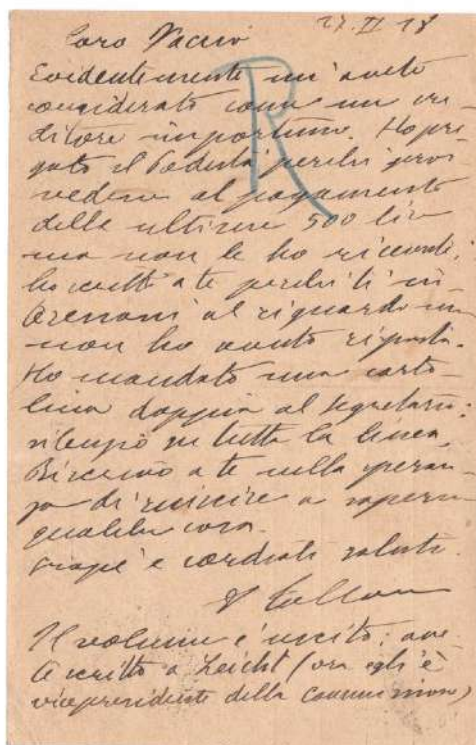 27. II 18
Caro
Evidentemente m'avete
considerato come un cre-
ditore importuno. Ho pre-
gato il Podestà perché prov-
vedesse al pagamento
delle ultime 500 lire
ma non le ho ricevute,
ho scritto a te perché ti in-
teressassi al riguardo ma
non ho avuto risposta.
Ho mandato una carto-
lina doppia al segretario:
silenzio su tutta la linea.
Riscrivo a te nella speran-
za di riuscire a sapere
qualche cosa.
Grazie e cordiali saluti.
Il volume è uscito; ave-
te scritto a Leicht (ora egli è
vicepresidente della Commissione)
R